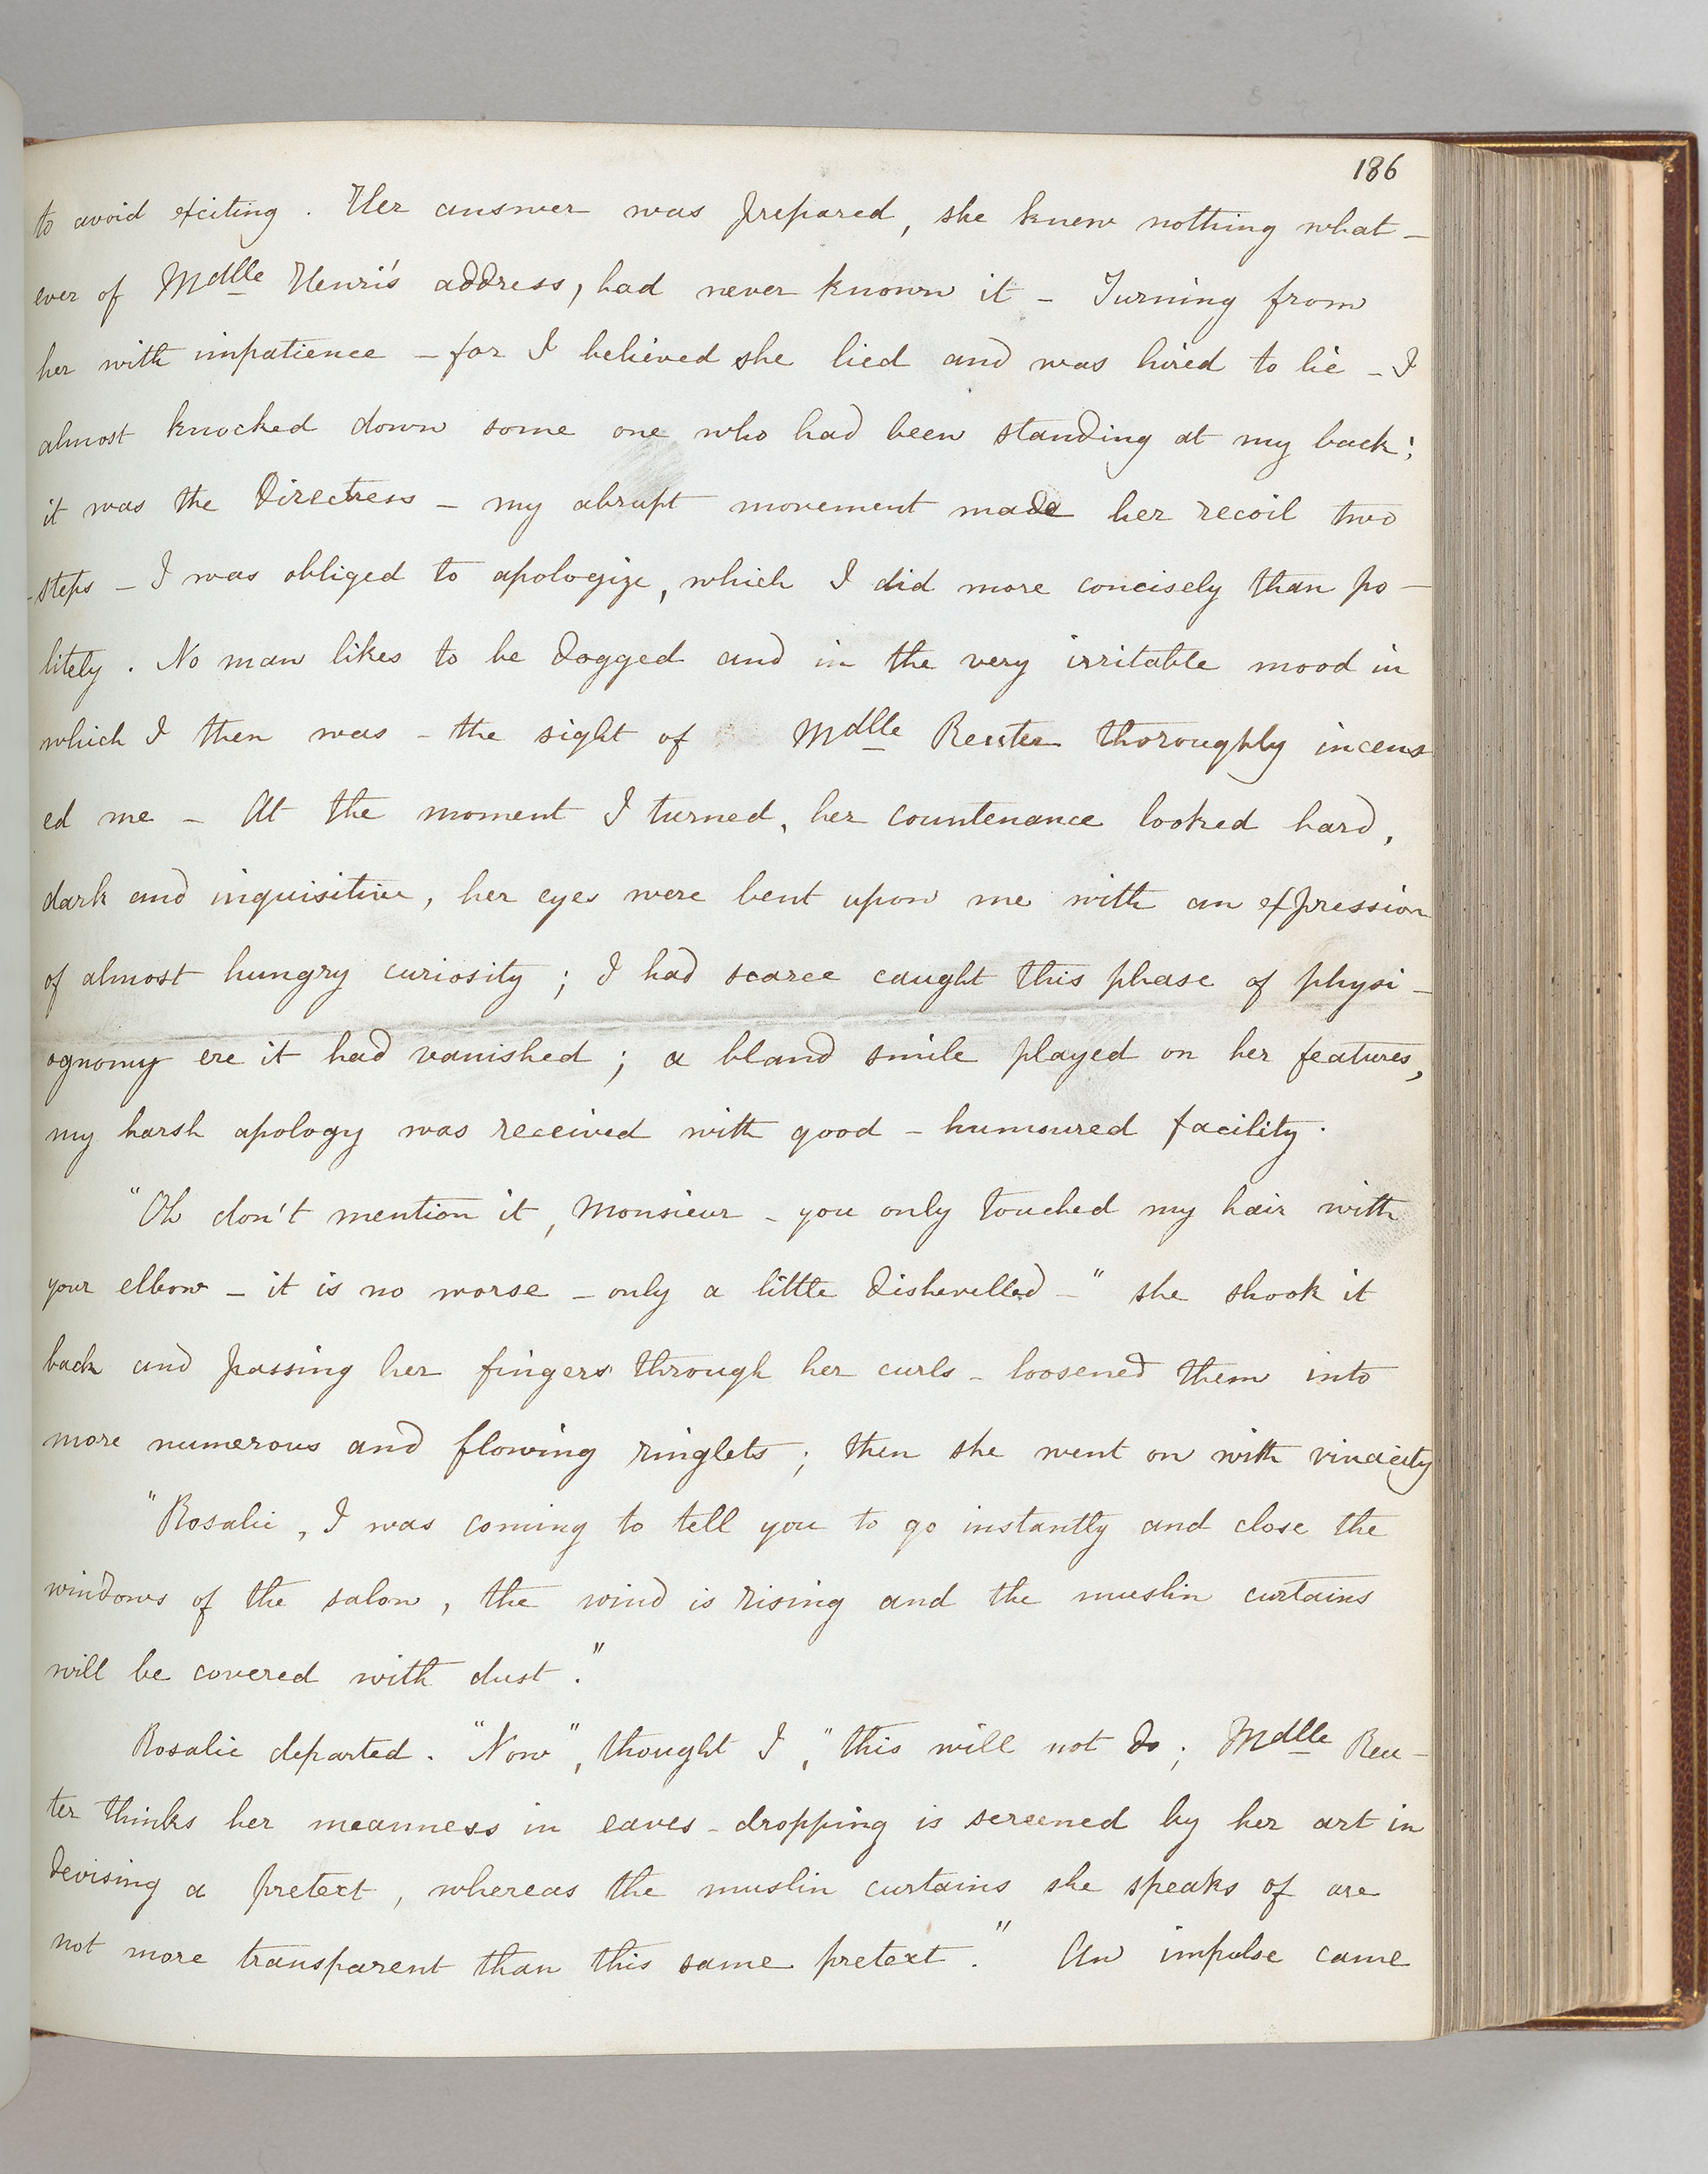 186
to avoid exciting . Her answer was prepared, she knew nothing what-
ever of Mdlle Henri's address, had never known it - Turning from
her with impatience - for I believed she lied and was hired to lie - I
almost knocked down some one who had been standing at my back;
it was the Directress - my abrupt movement made her recoil two
steps - I was obliged to apologize, which I did more concisely than po-
litely . No man likes to be dogged and in the very irritable mood in
which I then was - the sight of Mdlle Reuter thoroughly incens
ed me - At the moment I turned, her countenance looked hard,
dark and inquisitive, her eyes were bent upon me with an expression
of almost hungry curiosity ; I had scarce caught this phase of physi-
ognomy ere it had vanished ; a bland smile played on her features,
my harsh apology was received with good - humoured facility .
"Oh don't mention it, Monsieur - you only touched my hair with
your elbow - it is no worse - only a little dishevelled - " she shook it
back and passing her fingers through her curls - loosened them into
more numerous and flowing ringlets ; then she went on with vivacity
"Rosalie , I was coming to tell you to go instantly and close the
windows of the salon , the wind is rising and the muslin curtains
will be covered with dust ."
Rosalie departed . "Now", thought I, "this will not do ; Mdlle Reu-
ter thinks her meanness in eaves-dropping is screened by her art in
devising a pretext , whereas the muslin curtains she speaks of are
not more transparent than this same pretext ." An impulse came